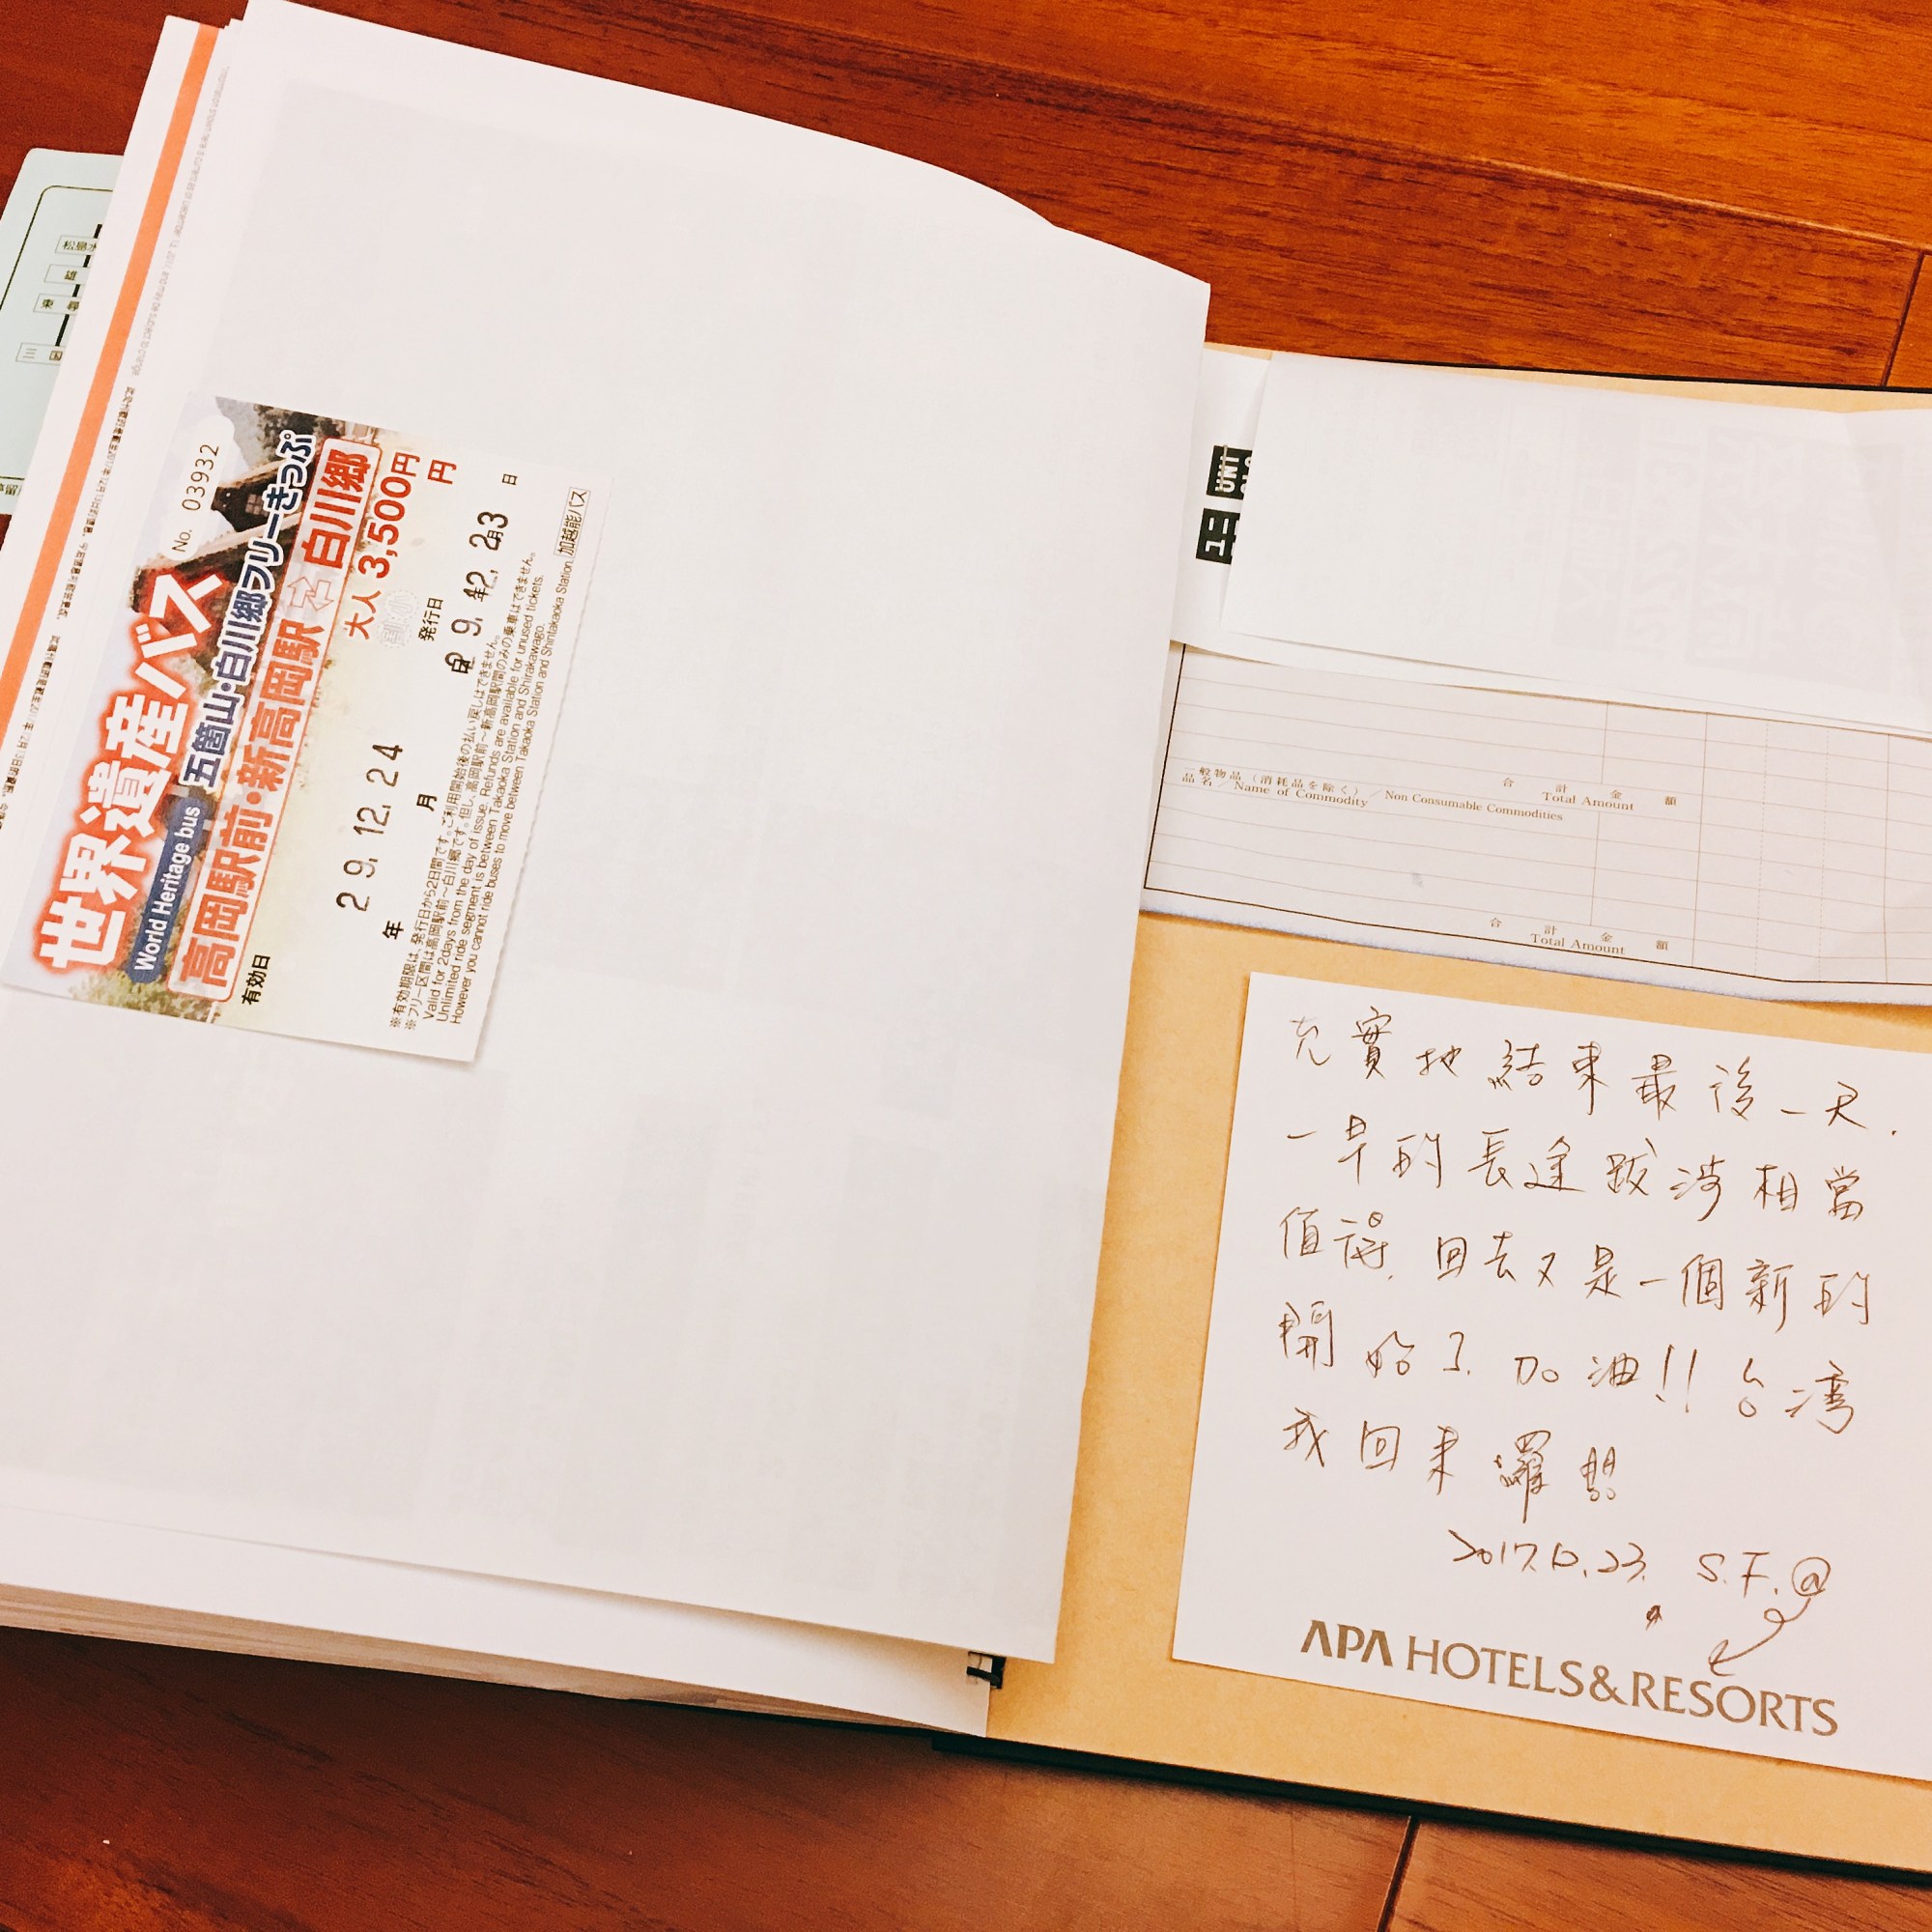 No. 03932
世界遺産バス
World Heritage bus 五箇山・白川郷フリーきっぷ
高岡駅前・新高岡駅 ⇆ 白川郷
大人 3,500円
円
有効日
29.12.24
年 月 日
発行日
9.12.23
※有効期限は、発行日から2日間です。ご利用開始後の払い戻しはできません。
※フリー区間は高岡駅前～白川郷です。但し、高岡駅前～新高岡駅間のみの乗車はできません。
Valid for 2days from the day of issue. Refunds are available for unused tickets.
Unlimited ride segment is between Takaoka Station and Shirakawago.
However you cannot ride buses to move between Takaoka Station and Shintakaoka Station.
加越能バス
UNI
合計金額
Total Amount
一般物品（消耗品を除く）/ Non Consumable Commodities
品名/Name of Commodity
合計金額
Total Amount
充實地結束最後一天.
一早的長途跋涉相當
值得. 回去又是一個新的
開始了. 加油!! 台灣
我回來囉!!
2017.12.23. S.F.@
APA HOTELS&RESORTS